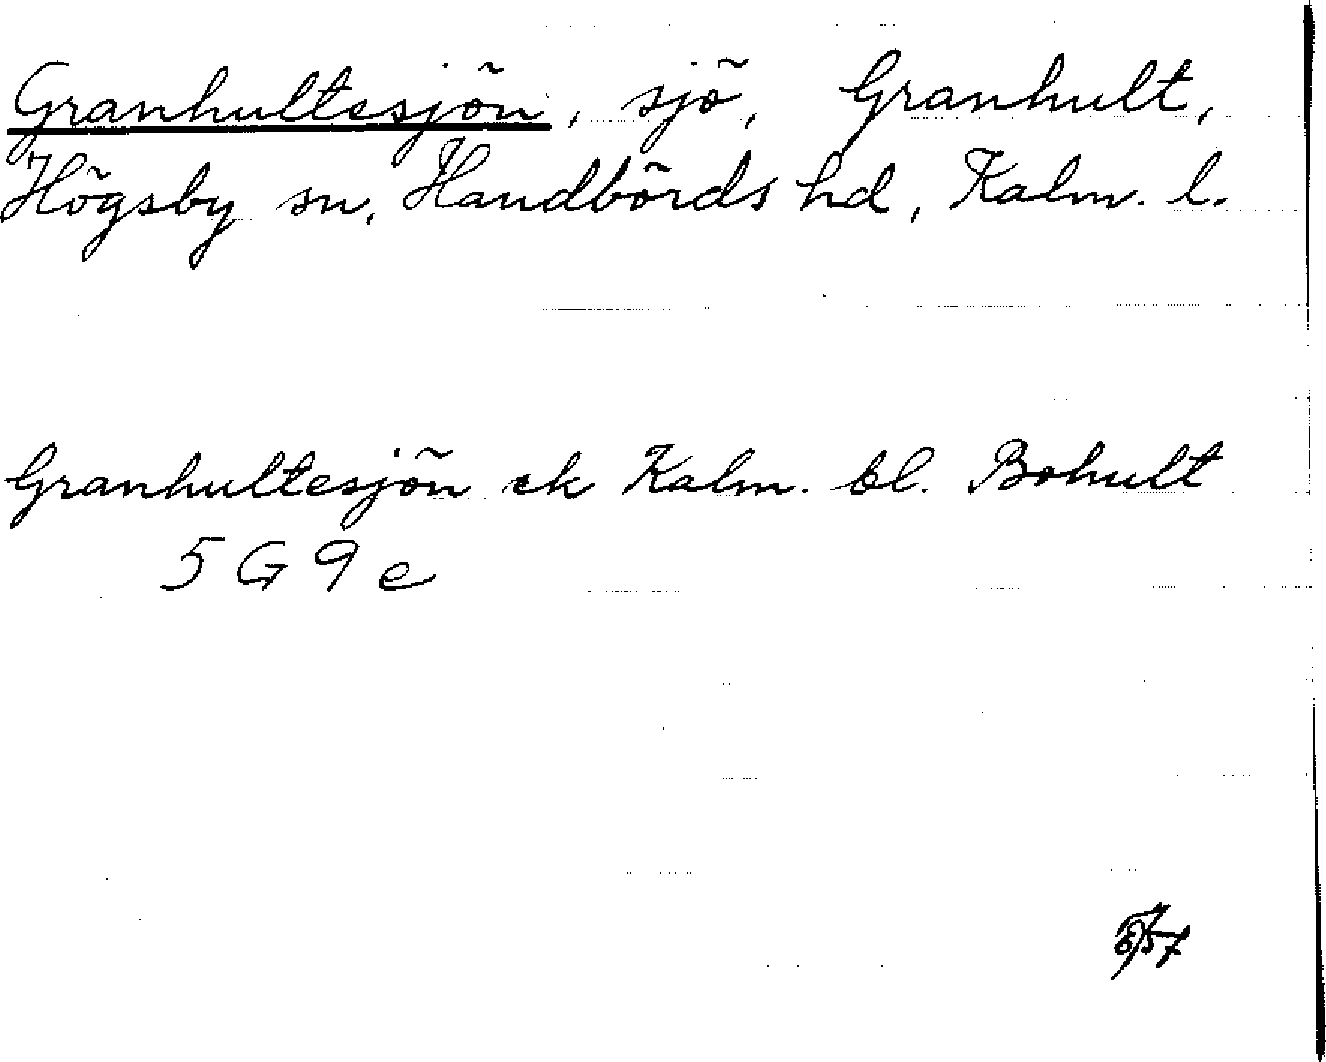 Granhultesjön, sjö, Granhult,
Högsby sn, Handbörds hd, Kalm. l.
Granhultesjön ek Kalm. bl. Bohult
5 G 9 e